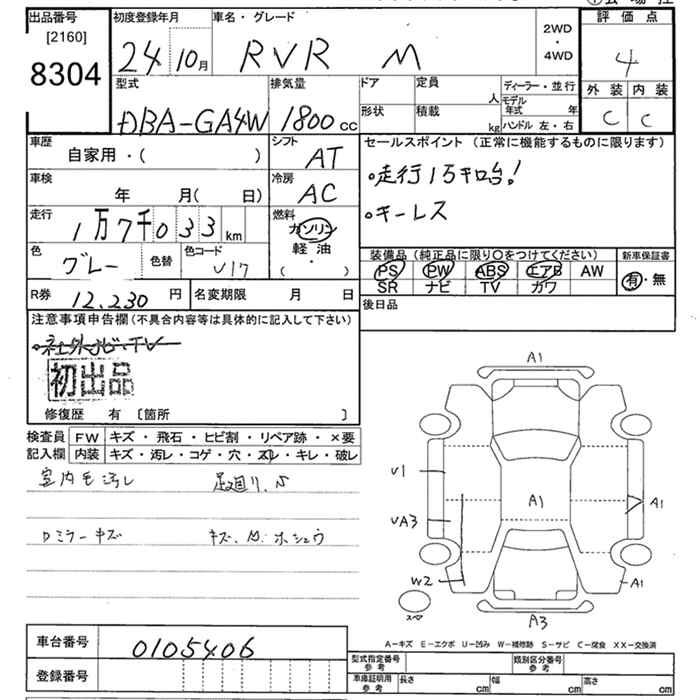 出品番号 初度登録年月 車名・グレード 評価点
[2160]
8304
24 10月 RVR M 2WD ・ 4WD 4
型式 排気量 ドア 定員 ディーラー・並行 外装 内装
人 モデル年式 年
DBA-GA4W 1800cc 形状 積載 kg ハンドル 左・右 C C
車歴 シフト セールスポイント (正常に機能するものに限ります)
自家用・( ) AT
・走行1万キロ台!
車検 冷房
年 月( 日) AC
・キーレス
走行 燃料
1万7千033km ガソリン
軽油
・( )
色 色替 色コード 装備品 (純正品に限り○をつけてください) 新車保証書
グレー U17 PS PW ABS エアB AW 有・無
SR ナビ TV カワ
R券 12,230円 名変期限 月 日 後日品
注意事項申告欄(不具合内容等は具体的に記入して下さい)
・社外ナビ・TV
初出品
修復歴 有 [箇所 ]
A1
検査員 FW キズ・飛石・ヒビ割・リペア跡・×要
記入欄 内装 キズ・汚レ・コゲ・穴・スレ・キレ・破レ
室内毛汚レ 足廻り、S
V1
A1
A1
ロミラーキズ キズ、M、ホシュウ
UA3
W2
A1
スペ
A3
A-キズ E-エクボ U-凹み W-補修跡 S-サビ C-腐食 XX-交換済
車台番号 0105406
型式指定番号 参考 類別区分番号 参考
登録番号
車庫証明用 参考 長さ cm 幅 cm 高さ cm